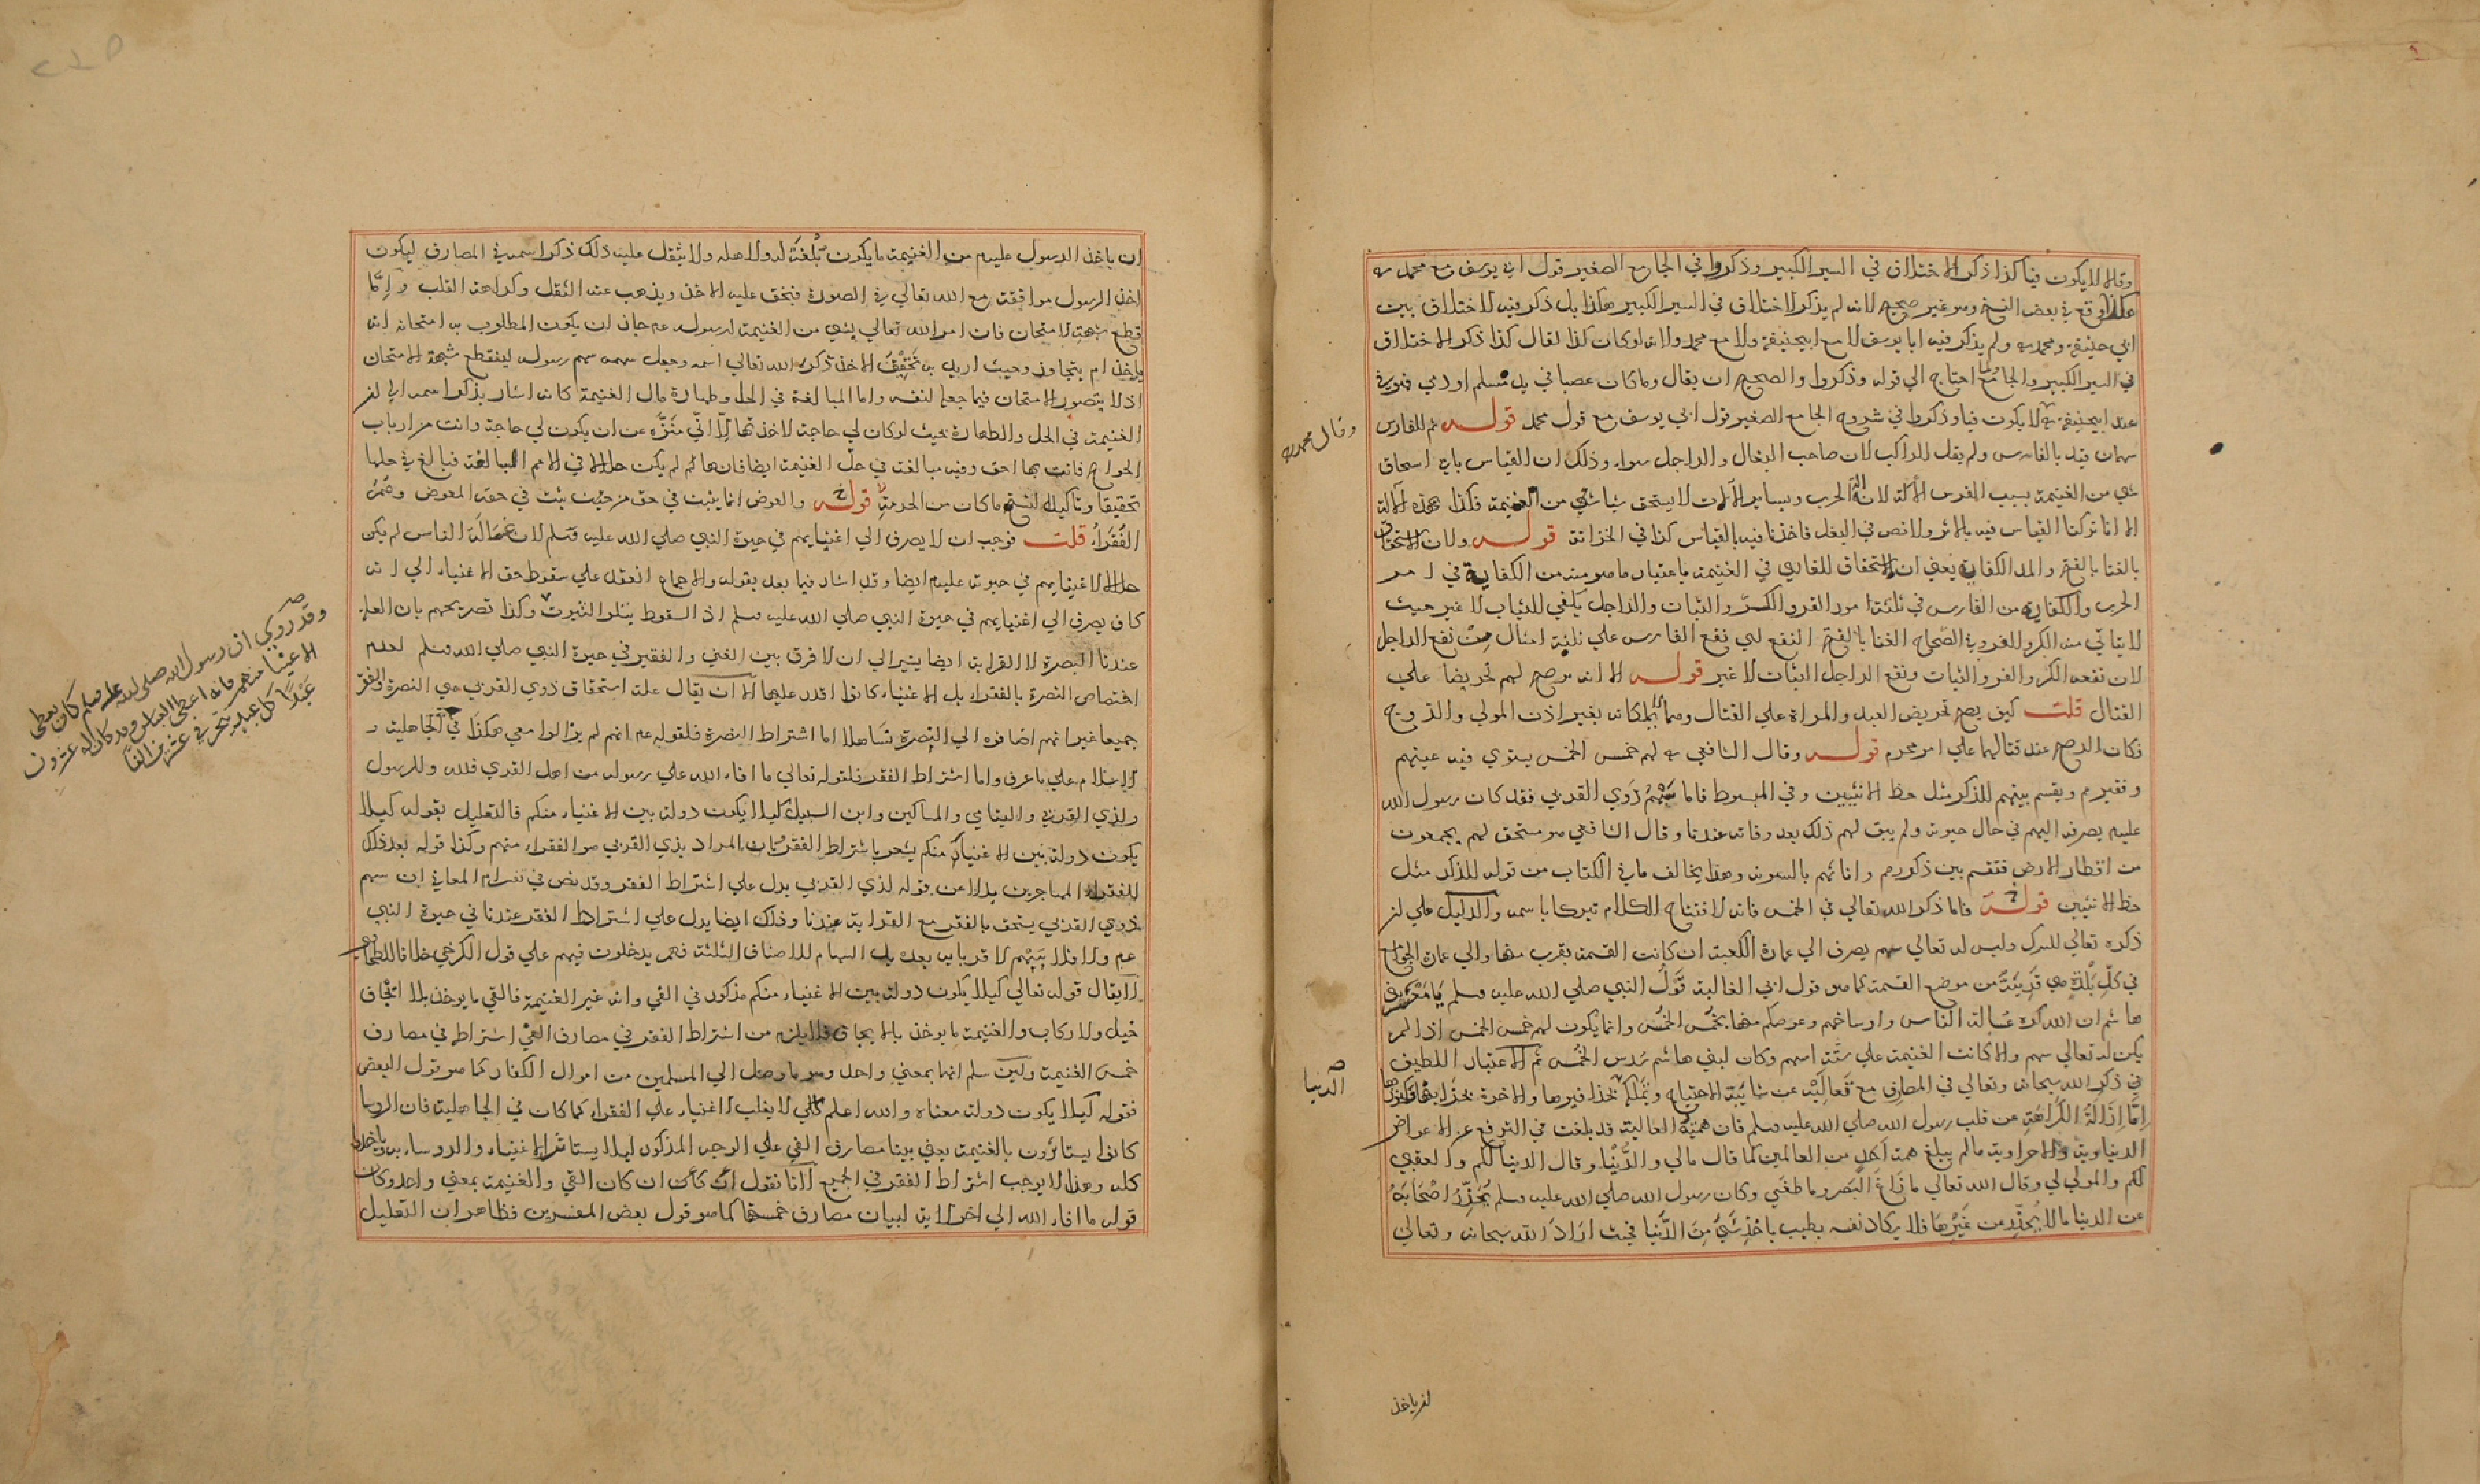 وقالا لا يكون فيا كذا ذكر الاختلاف في السير الكبير وذكروا في الجامع الصغير قول ابي يوسف مع محمد
هكذا وقع في بعض النسخ وهو غير صحيح لانه لم يذكر الاختلاف في السير الكبير هكذا بل ذكر فيه الاختلاف بين
ابي حنيفة ومحمد ولم يذكر فيه ابا يوسف لا مع ابيحنيفة ولا مع محمد ولانه لو كان كذا لقال كذا ذكر الاختلاف
في السير الكبير والجامع احتاج الي قوله وذكروا والصحيح ان يقال وما كان عصبا في يد مسلم او ذمي فهو فئ
عند ابيحنيفة لا يكون فيا وذكروا في شروح الجامع الصغير قول ابي يوسف مع قول محمد قوله ثم للفارس
وقال محمد
سهمان قيد بالفارس ولم يقل للراكب لان صاحب البغال والراجل سواء وذلك ان القياس يابي استحاق
شي من الغنيمة بسبب الفرس لانه آلة الحرب وبساير الآلات لا يستحق شيا من الغنيمة فكذا بهذه الآلة
الا انا تركنا القياس فيه بالاثر ولا نص في البغل فاخذنا فيه بالقياس كذا في الخزانة قوله ولان الاستحقاق
بالغنا بالفتح والمد الكفاية يعني ان الاستحقاق للغانمين في الغنيمة باعتبار ما هو منه من الكفاية في امر
الحرب والكفاية من الفارس في ثلثة امور الفر والكر والثبات والراجل يكفي للثبات لا غير حيث
لا يتاتي منه الكر والفر وفي الصحاح الغنا بالفتح النفع اي نفع الفارس علي ثلثة امثال من نفع الراجل
لان نفعه الكر والفر والثبات ونفع الراجل الثبات لا غير قوله الا انه يرضخ لهم تحريضا علي
القتال قلت كيف يصح تحريض العبد والمراة علي القتال وهما لا يملكانه بغير اذن المولي والزوج
فكان الرضخ عند قتالهما علي امر محرم قوله وقال الشافعي لهم خمس الخمس يستوي فيه غنيهم
وفقيرهم ويقسم بينهم للذكر مثل حظ الانثيين وفي المبسوط فاما سهم ذوي القربي فقد كان رسول الله
عليه يصرفه اليهم في حال حيوته ولم يبق لهم ذلك بعد وفاته عندنا وقال الشافعي هو مستحق لهم يجمعون
من اقطار الارض فتقسم بين ذكورهم واناثهم بالسوية وهذا يخالف ما في الكتاب من قوله للذكر مثل
حظ الانثيين قوله فاما ذكر الله تعالي في الخمس فانه لافتتاح الكلام تبركا باسمه والدليل علي ان
ذكره تعالي للتبرك وليس له تعالي سهم يصرف الي عمارة الكعبة ان كانت القسمة بقرب منها والي عمارة الجوامع
في كل بلدة هي قريبة من موضع القسمة كما هو قول ابي العالية قول النبي صلي الله عليه وسلم يا معشر بني
هاشم ان الله كره غسالة الناس واوساخهم وعوضكم منها بخمس الخمس وانما يكون لهم خمس الخمس اذا لم
يكن لله تعالي سهم والا كانت الغنيمة علي ستة اسهم وكان لبني هاشم سدس الخمس ثم الاعتبار اللطيف
في ذكر الله سبحانه وتعالي في المصارف مع تعاليه عن شايبة الاحتياج وتملكه الدنيا بحذافيرها والاخرة
اما ازالة الكراهة عن قلب رسول الله صلي الله عليه وسلم فان همته العالية قد بلغت في الترفع عن الاعراض
الدنياوية والاحراوية ما لم يبلغ همة احد من العالمين كما قال مالي والدنيا وقال الدنيا لكم والعقبي
لكم والمولي لي وقال الله تعالي ما زاغ البصر وما طغي وكان رسول الله صلي الله عليه وسلم يحذر اصحابه
عن الدنيا ما لا يحذر من غيرها فلا يكاد نفسه يطيب باخذ شي من الدنيا فحيث اراد الله سبحانه وتعالي
ان ياخذ
ان ياخذ الرسول عليه من الغنيمة ما يكون بلغة له ولاهله ولا يثقل عليه ذلك ذكر اسمه في المصارف ليكون
اخذ الرسول موافقة مع الله تعالي في الصورة فيخف عليه الاخذ ويذهب عنه الثقل وكراهة القلب واما
قطع شبهة الامتحان فان امر الله تعالي بشي من الغنيمة لرسوله عم جاز ان يكون المطلوب به امتحانه انه
ياخذ ام يتجاوز وحيث اريد به تحقيق الاخذ ذكر الله تعالي اسمه وجعل سهمه سهم رسوله لينقطع شبهة الامتحان
اذ لا يتصور الامتحان فيما جعله لنفسه واما المبالغة في الحل وطهارة مال الغنيمة كانه اشار بذكر اسمه الي ان
الغنيمة في الحل والطهارة بحيث لو كان لي حاجة لاخذتها الا اني منزه عن ان يكون لي حاجة وانت من ارباب
الحوايج فانت بها احق وفيه مبالغة في حل الغنيمة ايضا فانها لم يكن حلالا في الامم السالفة فبالغ في حلها
تحقيقا وتاكيدا لنسخ ما كان من الحرمة قوله والعوض انما يثبت في حق من يثبت في حقه المعوض وهم
الفقراء قلت فوجب ان لا يصرف الي اغنيايهم في حيوة النبي صلي الله عليه وسلم لان غسالة الناس لم يكن
حلالا لاغنيايهم في حيوته عليه ايضا وقد اشار فيما بعد بقوله والاجماع انعقد علي سقوط حق الاغنياء الي انه
كان يصرف الي اغنيايهم في حيوة النبي صلي الله عليه وسلم اذ السقوط يتلو الثبوت وكذا تصريحهم بان العلة
عندنا النصرة لا القرابة ايضا يشير الي ان لا فرق بين الغني والفقير في حيوة النبي صلي الله وسلم لعدم
اختصاص النصرة بالفقراء بل الاغنياء كانوا اقدر عليها الا ان يقال علة استحقاق ذوي القربي هي النصرة والفقر
جميعا غير انهم اضافوه الي النصرة تساهلا اما اشتراط النصرة فلقوله عم انهم لم يزالوا معي هكذا في الجاهلية و
الاسلام علي ما عرف واما اشتراط الفقر فلقوله تعالي ما افاء الله علي رسوله من اهل القري فلله وللرسول
ولذي القربي واليتامي والمساكين وابن السبيل كيلا يكون دولة بين الاغنياء منكم فالتعليل بقوله كيلا
يكون دولة بين الاغنياء منكم يشعر باشتراط الفقر بان المراد بذي القربي هو الفقراء منهم وكذا قوله بعد ذلك
للفقراء المهاجرين بدلا من قوله لذي القربي يدل علي اشتراط الفقر وقد نص في المعاني ان سهم
ذوي القربي يستحق بالفقر مع القرابة عندنا وذلك ايضا يدل علي اشتراط الفقر عندنا في حيوة النبي
لا يقال قوله تعالي كيلا يكون دولة بين الاغنياء منكم مذكور في الفئ وانه غير الغنيمة فالفي ما يوخذ بلا ايجاف
خيل ولا ركاب والغنيمة ما يوخذ بالايجاف فلا يلزم من اشتراط الفقر في مصارف الفئ اشتراطه في مصارف
خمس الغنيمة ولئن سلم انهما بمعني واحد وهو ما وصل الي المسلمين من اموال الكفار كما هو قول البعض
فقوله كيلا يكون دولة معناه والله اعلم كي لا يغلب الاغنياء علي الفقراء كما كان في الجاهلية فان الروسا
كانوا يستاثرون بالغنيمة يعني بينا مصارف الفئ علي الوجه المذكور ليلا يستاثر الاغنياء والروساء به وياخذوا
كله وهذا لا يوجب اشتراط الفقر في الجميع لانا نقول ان كان الفئ والغنيمة بمعني واحد وكان
قوله ما افاء الله الي اخر الاية لبيان مصارف خمسها كما هو قول بعض المفسرين فظاهر ان التعليل
وقد روي ان رسول الله صلى الله عليه وسلم كان يعطي
الاغنيا منهم فانه اعطى العباس وقد كان له عشرون
عبدا كل عبد يتجر في عشرين الفا